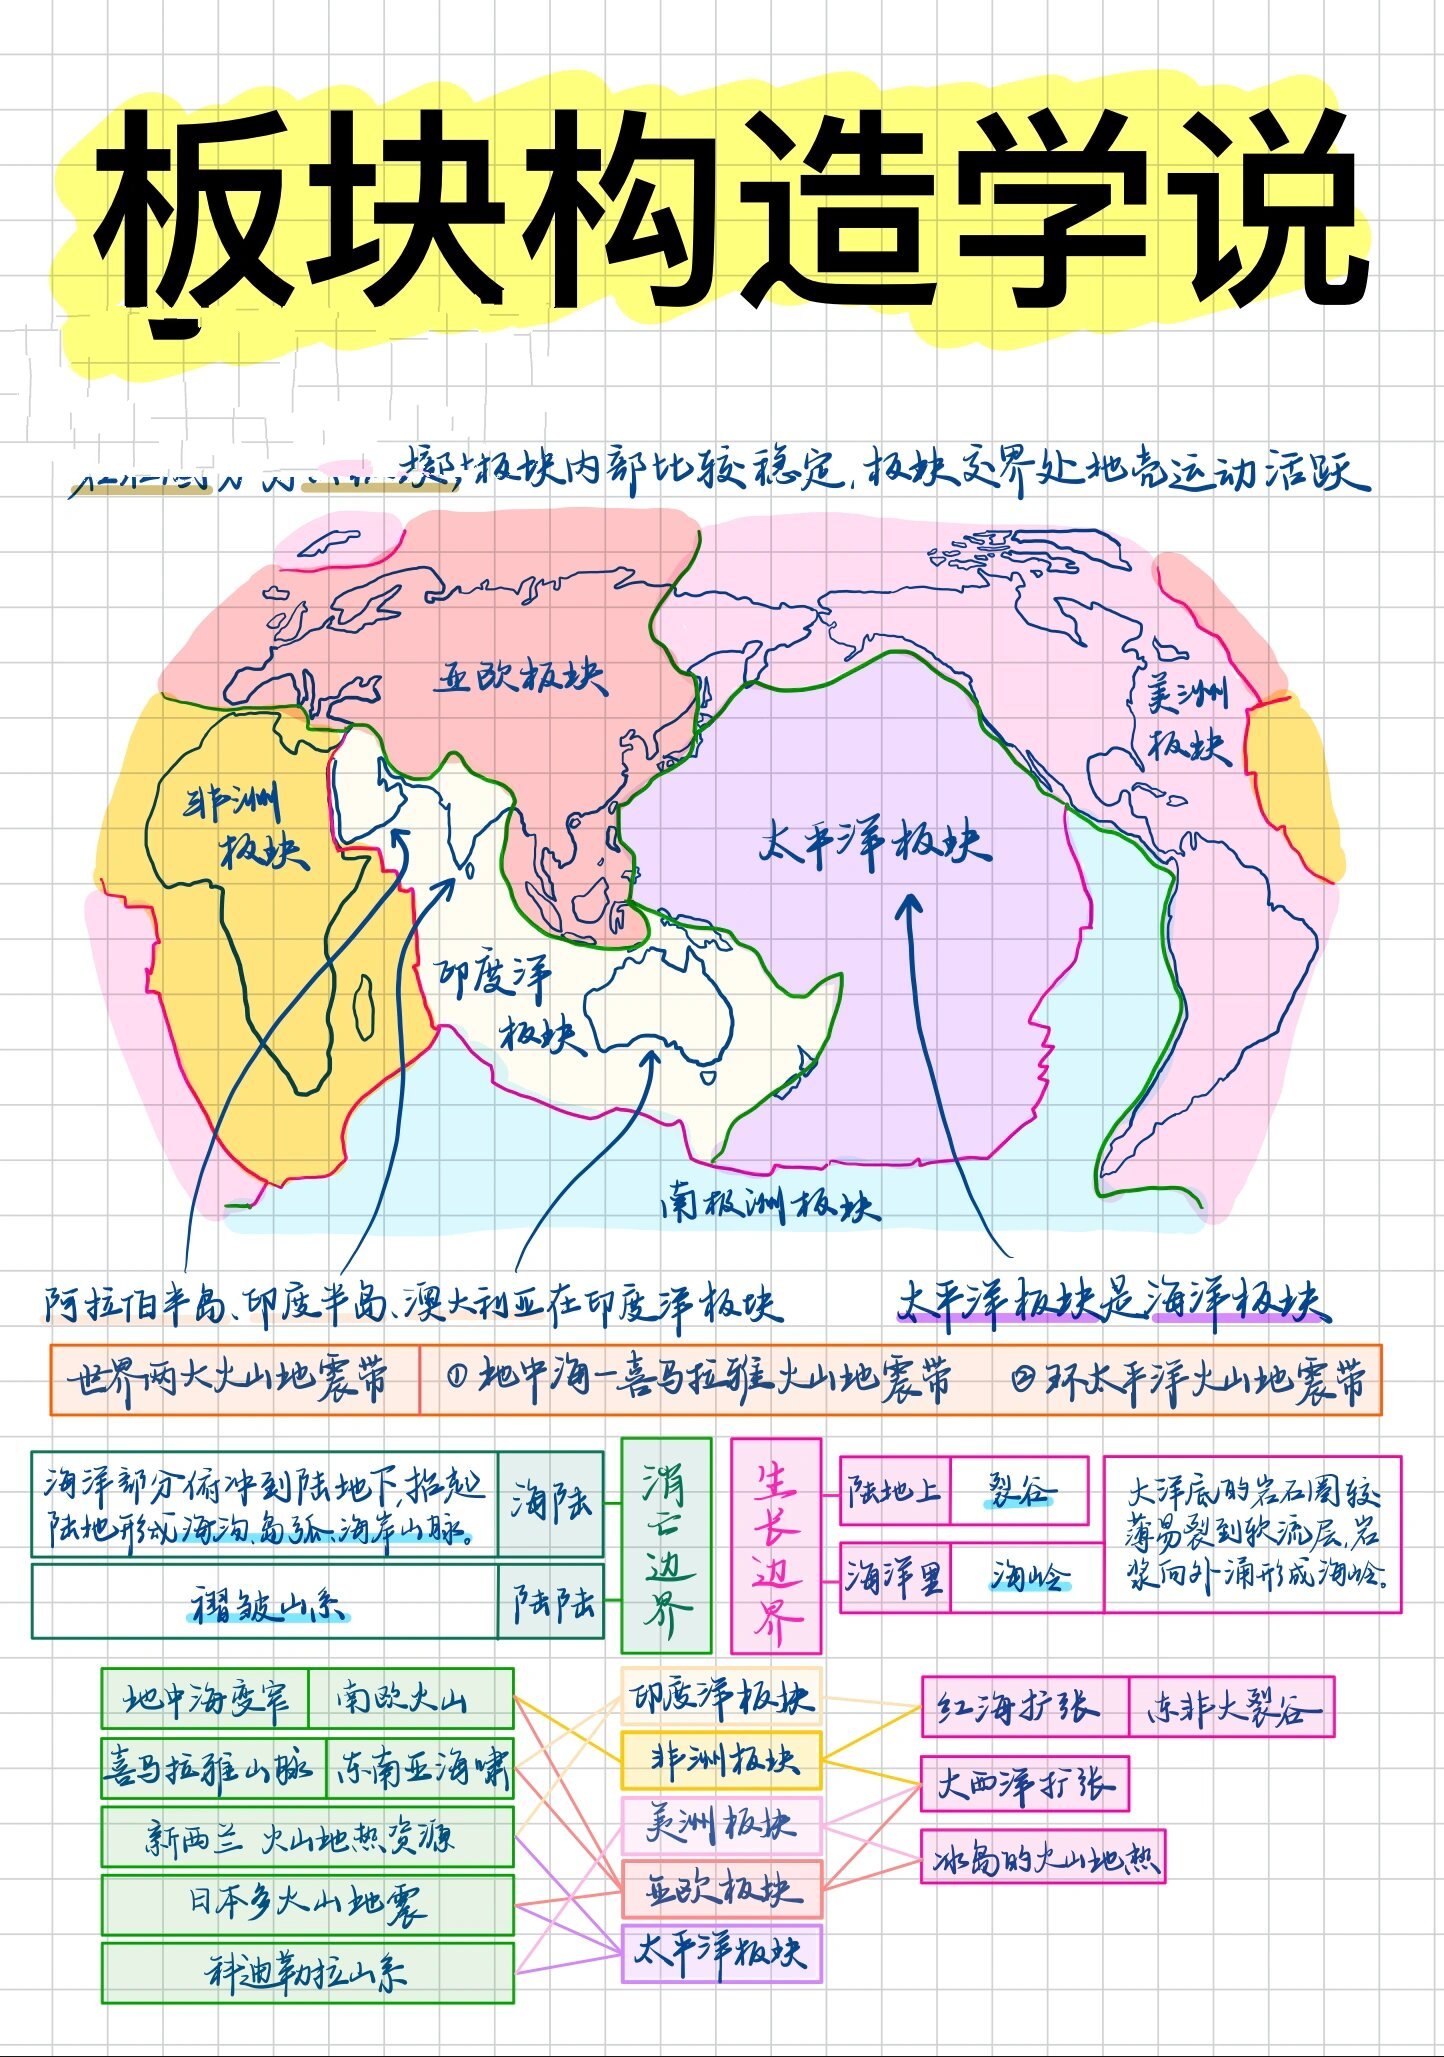 板块构造学说
板块内部比较稳定,板块交界处地壳运动活跃
亚欧板块
美洲
板块
非洲
板块
太平洋板块
印度洋
板块
南极洲板块
阿拉伯半岛、印度半岛、澳大利亚在印度洋板块
太平洋板块是海洋板块
世界两大火山地震带 ①地中海—喜马拉雅火山地震带 ②环太平洋火山地震带
海洋部分俯冲到陆地下,抬起
陆地形成海沟、岛弧、海岸山脉。
海陆
褶皱山系
陆陆
消亡边界
生长边界
陆地上 裂谷
海洋里 海岭
大洋底的岩石圈较
薄易裂到软流层,岩
浆向外涌形成海岭。
地中海变窄 南欧火山
喜马拉雅山脉 东南亚海啸
新西兰 火山地热资源
日本多火山地震
科迪勒拉山系
印度洋板块
非洲板块
美洲板块
亚欧板块
太平洋板块
红海扩张 东非大裂谷
大西洋扩张
冰岛的火山地热